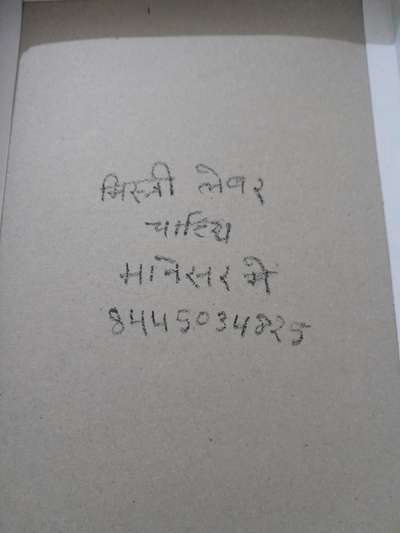 मिस्त्री लेवर
चाहिय
मानेसर मे
8445034825